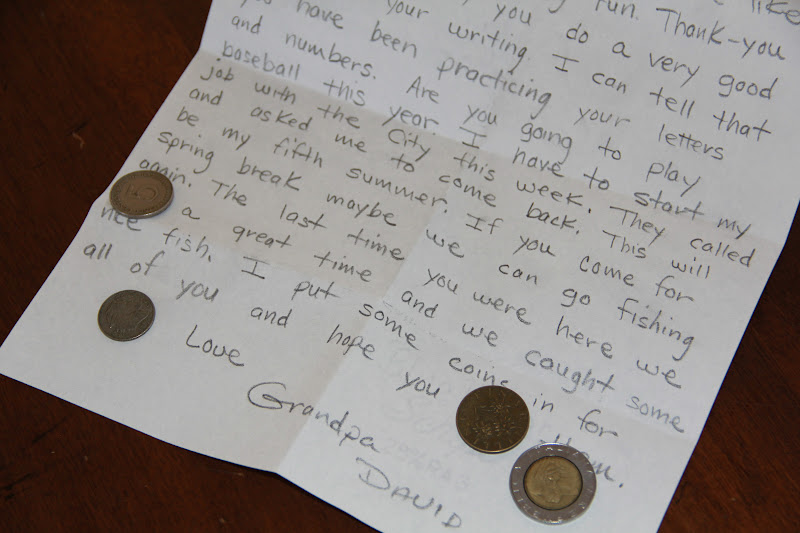 like
fun. Thank-you
you do a very good
your writing. I can tell that
you have been practicing your letters
and numbers. Are you going to play
baseball this year. I have to start my
job with the City this week. They called
and asked me to come back. This will
be my fifth summer. If you come for
spring break maybe we can go fishing
again. The last time you were here we
a great time and we caught some
nice fish. I put some coins in for
all of you and hope you them.
Love
Grandpa
DAVID
5